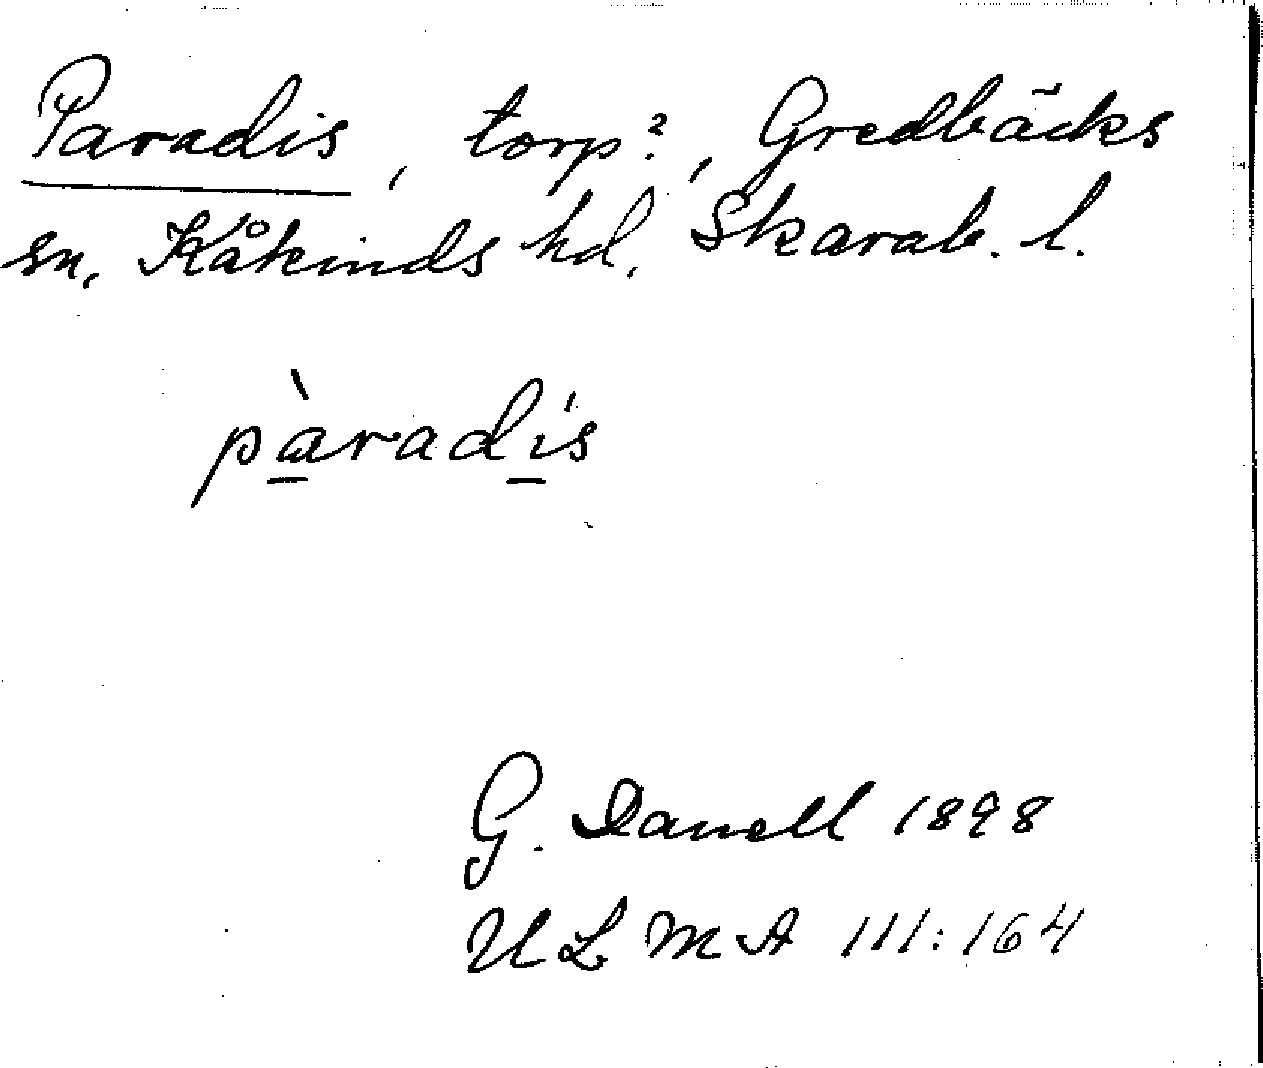 Paradis, torp?, Gredbäcks
sn. Kåkinds hd. Skarab. l.
pàradís
G. Danell 1898
ULMA 111:164